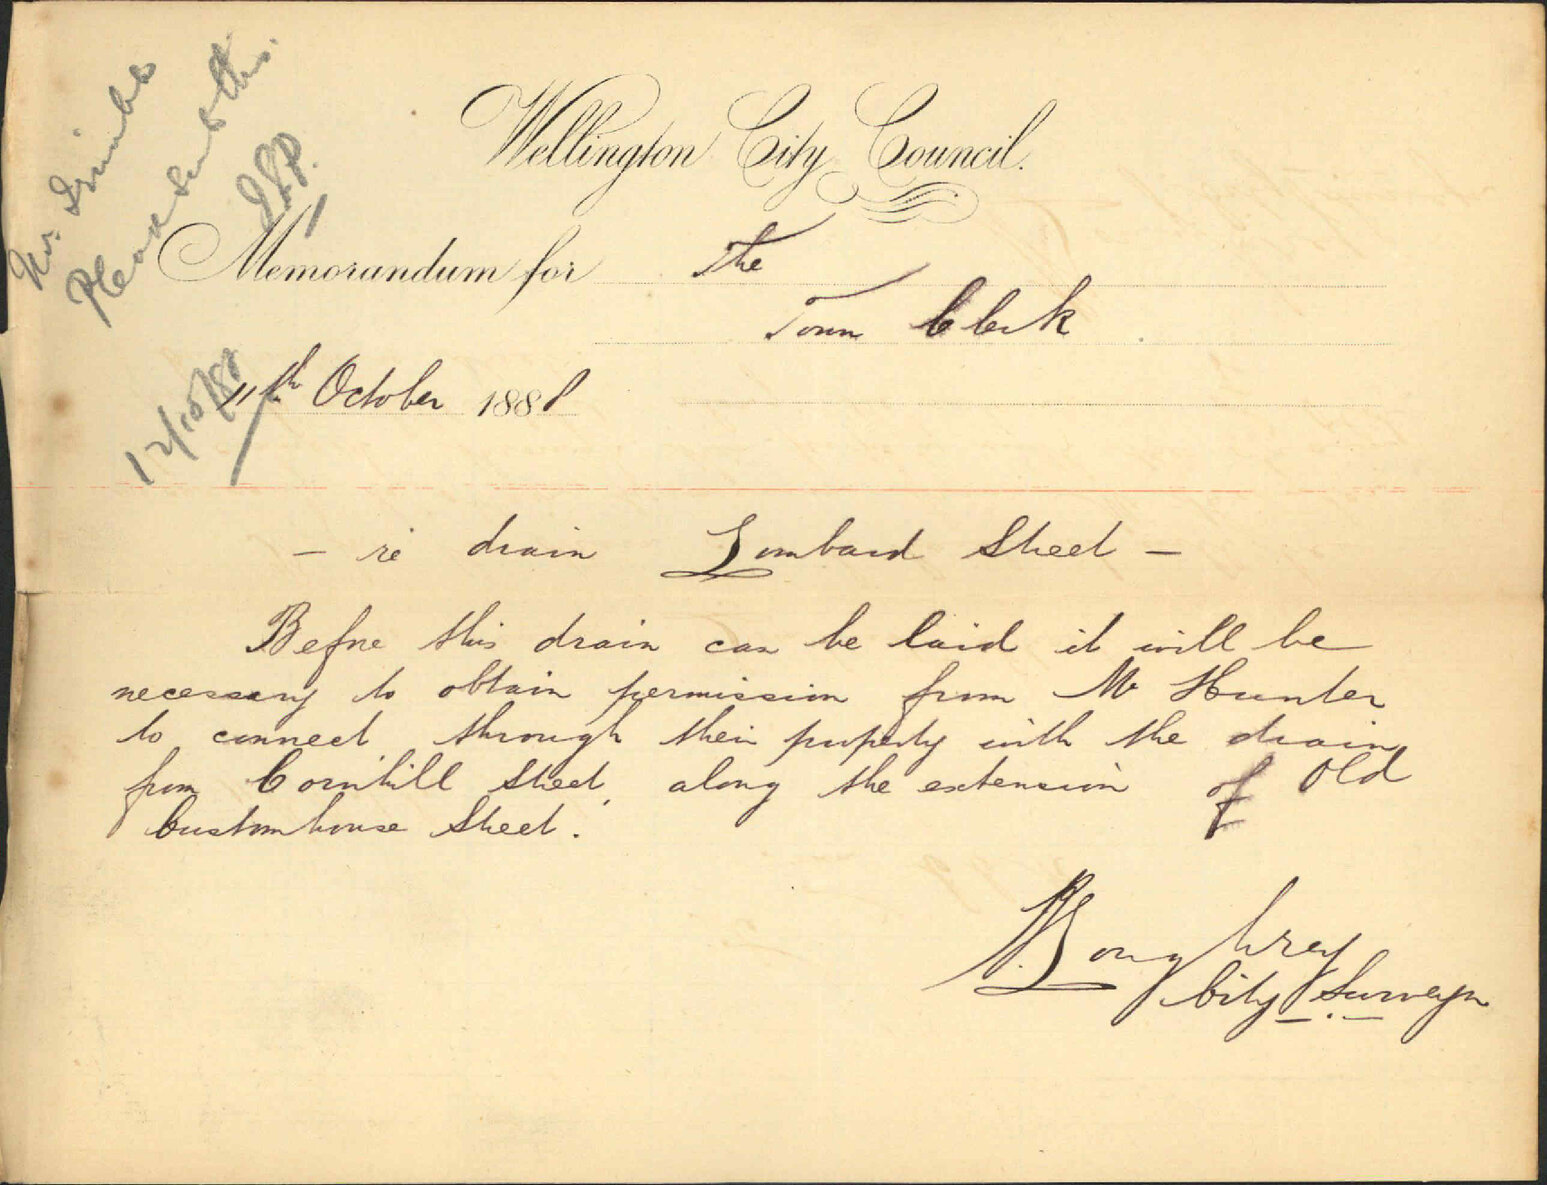 Mr.
Please send this.
12/10/88
Wellington City Council.
Memorandum for The
Town Clerk
11th October 1888
- re drain Lombard Street -
Before this drain can be laid it will be
necessary to obtain permission from Mr Hunter
to connect through their property with the drain
from Cornhill Street along the extension of Old
Customhouse Street.
Loughrey
City Surveyor